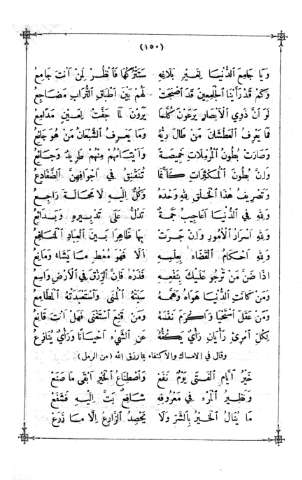 (١٥٠)
وَيَا جَامِعَ الدُّنْيَا لِغَيْرِ بَلَاغِهِ سَتَتْرُكُهَا فَانْظُرْ لِمَنْ أَنْتَ جَامِعُ
وَكَمْ قَدْ رَأَيْنَا الْجَامِعِينَ قَدَ اصْبَحَتْ لَهُمْ بَيْنَ أَطْبَاقِ التُّرَابِ مَضَاجِعُ
لَوَ أَنَّ ذَوِي الْأَبْصَارِ يَرْعَوْنَ كُلَّمَا يَرَوْنَ لَمَا جَفَّتْ لِعَيْنٍ مَدَامِعُ
فَمَا يَعْرِفُ الْعَطْشَانَ مَنْ طَالَ رِيُّهُ وَمَا يَعْرِفُ الشَّبْعَانُ مَنْ هُوَ جَائِعُ
وَصَارَتْ بُطُونُ الْمُرْمِلَاتِ خَمِيصَةً وَأَيْتَامُهَا مِنْهُمْ طَرِيدٌ وَجَائِعُ
وَإِنَّ بُطُونَ الْمُكْثِرَاتِ كَأَنَّمَا تُنَقْنِقُ فِي أَجْوَافِهِنَّ الضَّفَادِعُ
وَتَصْرِيفُ هٰذَا الْخَلْقِ لِلّٰهِ وَحْدَهُ وَكُلٌّ إِلَيْهِ لَا مَحَالَةَ رَاجِعُ
وَلِلّٰهِ فِي الدُّنْيَا أَعَاجِيبُ جَمَّةٌ تَدُلُّ عَلَى تَدْبِيرِهِ وَبَدَائِعُ
وَلِلّٰهِ أَسْرَارُ الْأُمُورِ وَإِنْ جَرَتْ بِهَا ظَاهِرًا بَيْنَ الْعِبَادِ الْمَنَافِعُ
وَلِلّٰهِ أَحْكَامُ الْقَضَاءِ بِعِلْمِهِ أَلَا فَهُوَ مُعْطٍ مَا يَشَاءُ وَمَانِعُ
إِذَا ضَنَّ مَنْ تَرْجُو عَلَيْكَ بِنَفْعِهِ فَدَعْهُ فَإِنَّ الرِّزْقَ فِي الْأَرْضِ وَاسِعُ
وَمَنْ كَانَتِ الدُّنْيَا هَوَاهُ وَهَمَّهُ سَبَتْهُ الْمُنَى وَاسْتَعْبَدَتْهُ الْمَطَامِعُ
وَمَنْ عَقَلَ اسْتَحْيَا وَأَكْرَمَ نَفْسَهُ وَمَنْ قَنِعَ اسْتَغْنَى فَهَلْ أَنْتَ قَانِعُ
لِكُلِّ امْرِئٍ رَأْيَانِ رَأْيٌ يَكُفُّهُ عَنِ الشَّيْءِ أَحْيَانًا وَرَأْيٌ يُنَازِعُ
وقال في الامساك والاكتفاء بما رزق الله (من الرمل)
خَيْرُ أَيَّامِ الْفَتَى يَوْمٌ نَفَعْ وَاصْطِنَاعُ الْخَيْرِ أَبْقَى مَا صَنَعْ
وَنَظِيرُ الْمَرْءِ فِي مَعْرُوفِهِ شَافِعٌ بَتَّ إِلَيْهِ فَشَفَعْ
مَا يُنَالُ الْخَيْرُ بِالشَّرِّ وَلَا يَحْصِدُ الزَّارِعُ إِلَّا مَا زَرَعْ